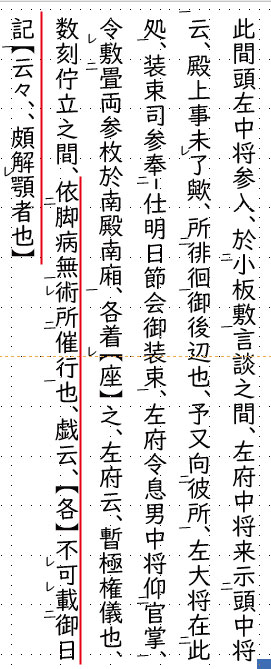 此間頭左中将参入、於小板敷言談之間、左府中将来示頭中将
云、殿上事未了歟、所徘徊御後辺也、予又向彼所、左大将在此
処、装束司参奉仕明日節会御装束、左府令息男中将仰官掌、
令敷畳両参枚於南殿南廂、各着【座】之、左府云、暫極権儀也、
数刻佇立之間、依脚病無術所催行也、戯云、【各】不可載御日
記【云々、頗解顎者也】